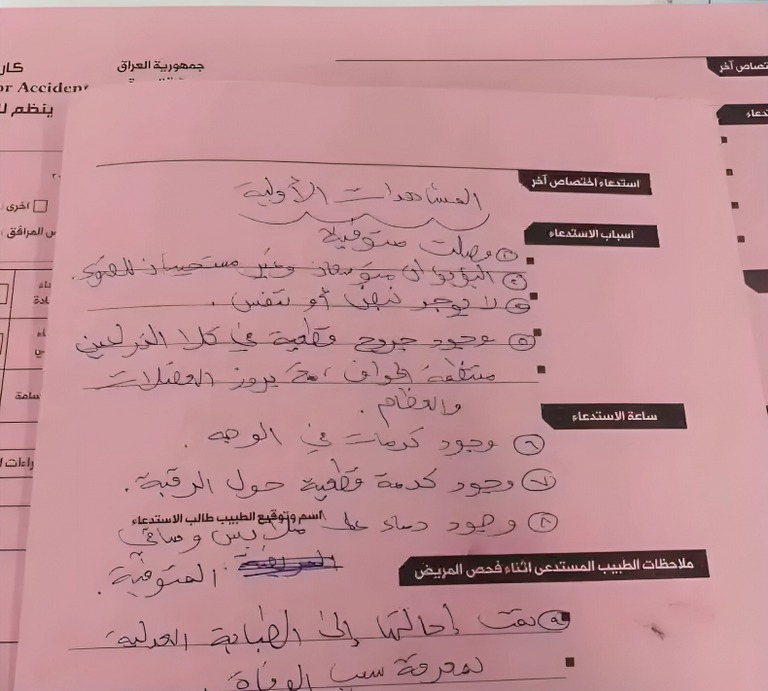 جمهورية العراق
كار
or Accident
ينظم لل
اخرى
س المرافق
تصاص آخر
دعاء
استدعاء اختصاص آخر
المشاهدات الأولية
اسباب الاستدعاء
① وصلت متوفية
② البؤبؤان متوسعان وغير مستجيبان للضوء.
③ لا يوجد نبض أو تنفس.
⑤ وجود جروح قطعية في كلا الذراعين
منتظمة الحواف، مع بروز العضلات
والعظام.
ساعة الاستدعاء
⑥ وجود كدمات في الوجه.
⑦ وجود كدمة قطعية حول الرقبة.
اسم وتوقيع الطبيب طالب الاستدعاء
⑧ وجود دماء على ملابس وساقي
المتوفية.
ملاحظات الطبيب المستدعى اثناء فحص المريض
⑨ تمت إحالتها إلى الطبابة العدلية
لمعرفة سبب الوفاة.